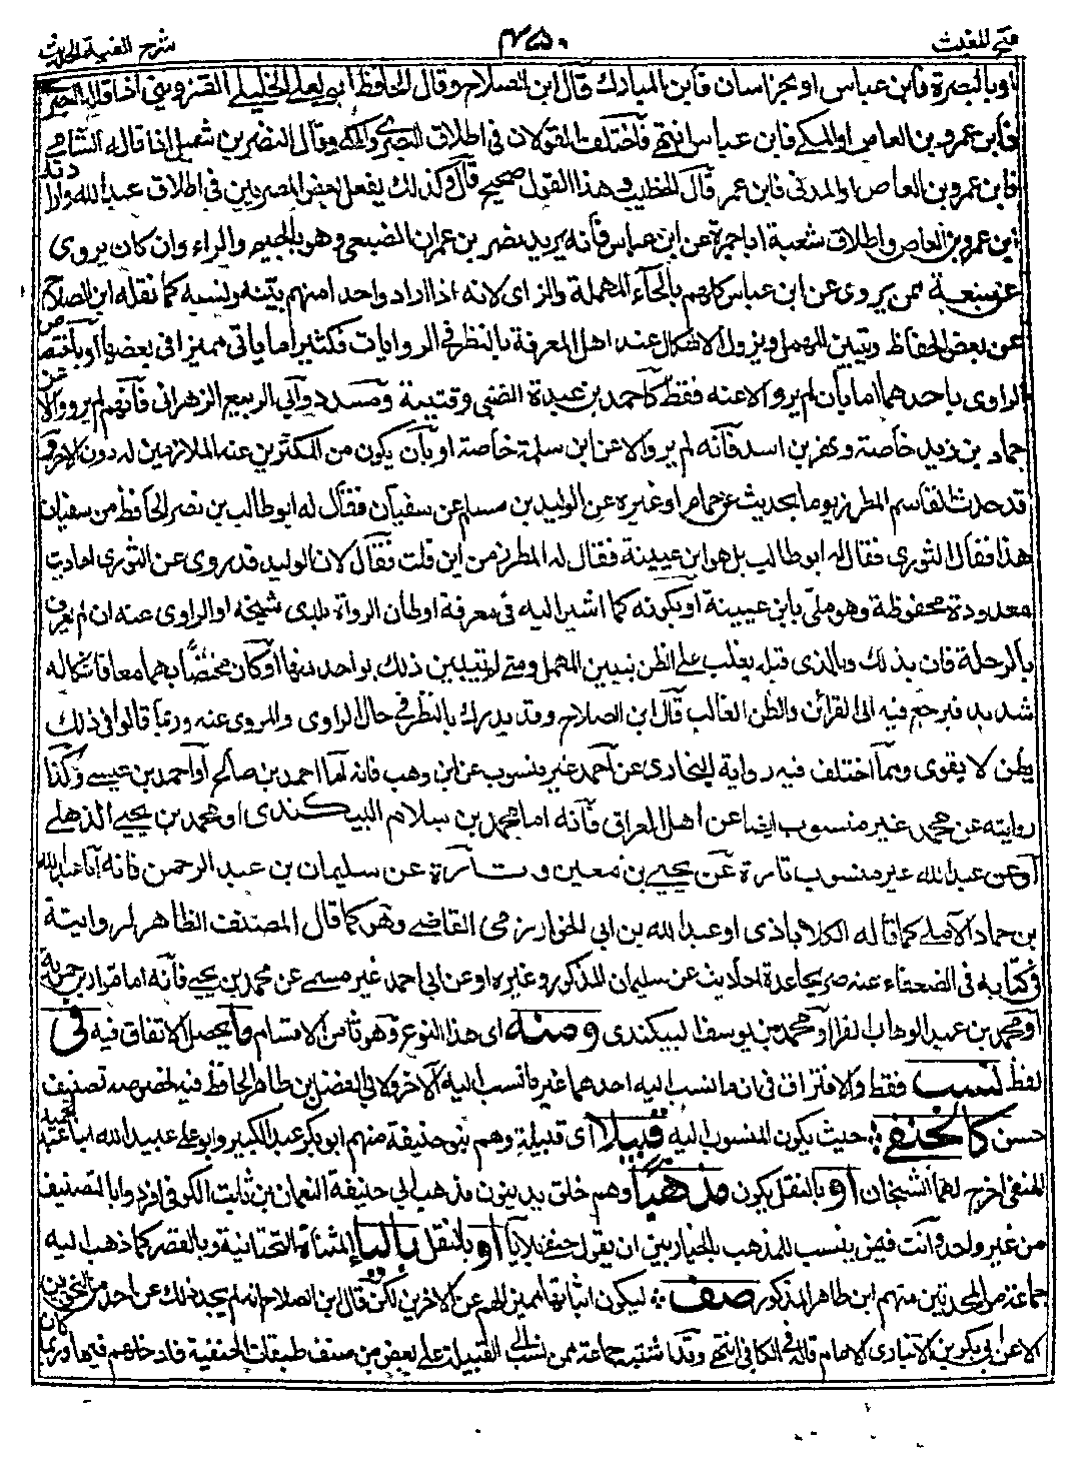 فتح المغيث ٤٥٠ شرح الفية الحديث
او بالبصرة فابن عباس او بخراسان فابن المبارك قال ابن الصلاح وقال الحافظ ابو يعلى الخليلي القزويني اذا قاله المصري
فابن عمرو بن العاص او المكي فابن عباس انتهى فاختلف القولان في اطلاق البصري والمكي وقال النضر بن شميل اذا قاله الشامي
فابن عمرو بن العاص او المدني فابن عمر قال الخطيب وهذا القول صحيح قال وكذلك يفعل بعض المصريين في اطلاق عبد الله وارادته
ابن عمرو بن العاص واطلاق شعبة ابا جمرة عن ابن عباس فانه يريد نصر بن عمران الضبعي وهو بالجيم والراء وان كان يروى
عن سبعة ممن يروى عن ابن عباس كلهم بالحاء المهملة والزاى لانه اذا اراد واحدا منهم بينه ونسبه كما نقله ابن الصلاح
عن بعض الحفاظ ويتبين المهمل ويزول الاشكال عند اهل المعرفة بالنظر في الروايات فكثيرا ما يأتي مميزا في بعضها او باختصاص
الراوى باحدهما اما بان لم يرو الا عنه فقط كاحمد بن عبدة الضبي وقتيبة ومسدد وابي الربيع الزهراني فانهم لم يرووا الا عن
حماد بن زيد خاصة وبهز بن اسد فانه لم يرو الا عن ابن سلمة خاصة او بان يكون من المكثرين عنه الملازمين له دون الاخر و
قد حدث القاسم المطرز يوما بحديث عن همام او غيره عن الوليد بن مسلم عن سفيان فقال له ابو طالب بن نصر الحافظ من سفيان
هذا فقال الثورى فقال له ابو طالب بل هو ابن عيينة فقال له المطرز من اين قلت فقال لان الوليد قد روى عن الثورى احاديث
معدودة محفوظة وهو ملي بابن عيينة او بكونه كما اشير اليه في معرفة اوطان الرواة بلدى شيخه او الراوى عنه ان لم يعرف
بالرحلة فان بذلك وبالذى قبله يغلب على الظن تبيين المهمل ومتى لم يتبين ذلك بواحد منها او كان مختصا بهما معا فاشكاله
شديد فيرجع فيه الى القرائن والظن الغالب قال ابن الصلاح وقد يدرك بالنظر في حال الراوى والمروى عنه وربما قالوا في ذلك
بظن لا يقوى ومما اختلف فيه رواية البخارى عن احمد غير منسوب عن ابن وهب فانه اما احمد بن صالح او احمد بن عيسى وكذا
روايته عن محمد غير منسوب ايضا عن اهل العراق فانه اما محمد بن سلام البيكندى او محمد بن يحيى الذهلي
او عن عبد الله غير منسوب تارة عن يحيى بن معين وتارة عن سليمان بن عبد الرحمن فانه اما عبد الله
بن حماد الآملي كما قاله الكلاباذى او عبد الله بن ابي الخوارزمى القاضي وهو كما قال المصنف الظاهر لروايته
في كتابه في الضعفاء عنه صريحا عدة احاديث عن سليمان المذكور وغيره او عن ابي احمد غير مسمى عن محمد بن يحيى فانه اما مرار بن حمويه
او محمد بن عبد الوهاب الفرا او محمد بن يوسف البيكندى ومنه اى هذا النوع وهو ثامن الاقسام ما يحصل الاتفاق فيه في
لفظ نسب فقط والافتراق في ان ما نسب اليه احدهما غير ما نسب اليه الآخر ولابي الفضل بن طاهر الحافظ فيه بخصوصه تصنيف
حسن كالحنفي حيث يكون المنسوب اليه قبيلا اى قبيلة وهم بنو حنيفة منهم ابو بكر عبد الكبير وابو علي عبيد الله ابنا عبد المجيد
الحنفي اخرج لهما الشيخان او بالنقل يكون مذهبا وهم خلق يدينون مذهب ابي حنيفة النعمان بن ثابت الكوفي افردوا بالتصنيف
من غير واحد وانت فيمن ينسب للمذهب بالخيار بين ان يقول حنفي بلا يا او بالنقل باليا المثناة التحتانية وبالقصر كما ذهب اليه
جماعة من المحدثين منهم ابن طاهر المذكور صف ليكون اثباتها مميزا لهم عن الاخرين لكن قال ابن الصلاح انه لم يجد ذلك عن احد من النحويين
الا عن ابي بكر بن الانبارى الامام قاله في الكافي انتهى وقد اشتبه جماعة ممن نسب الى القبيلة على بعض من صنف طبقات الحنفية فادخلهم فيها وربما كان